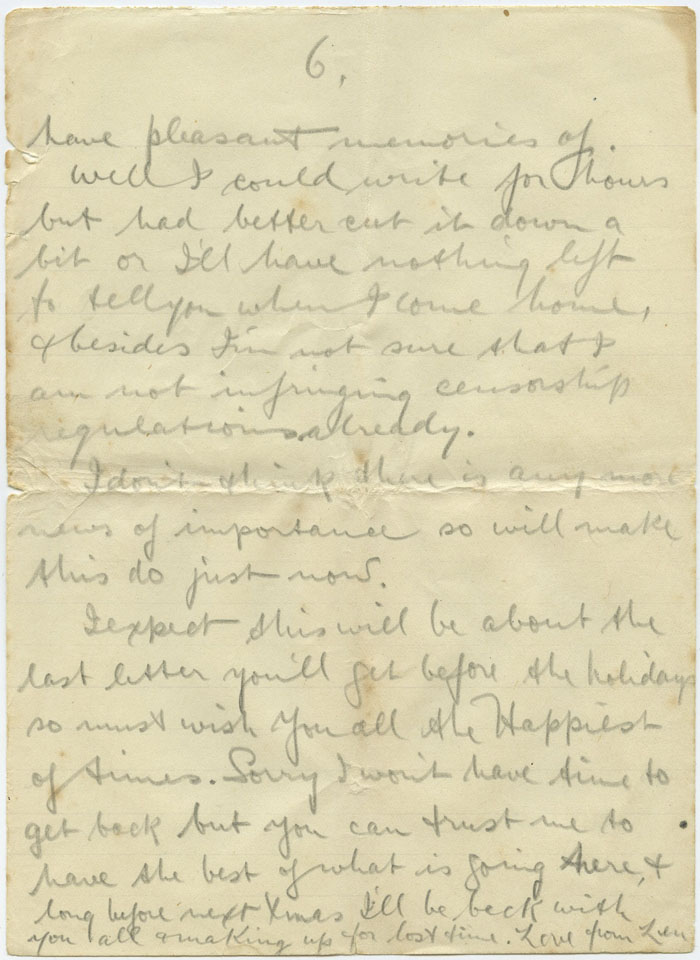 6.
have pleasant memories of.
Well I could write for hours
but had better cut it down a
bit or I'll have nothing left
to tell you when I come home,
& besides I'm not sure that I
am not infringing censorship
regulations already.
I don't think there is any more
news of importance so will make
this do just now.
I expect this will be about the
last letter you'll get before the holidays
so must wish you all the Happiest
of times. Sorry I won't have time to
get back but you can trust me to
have the best of what is going there, &
long before next Xmas I'll be back with
you all & making up for lost time. Love from